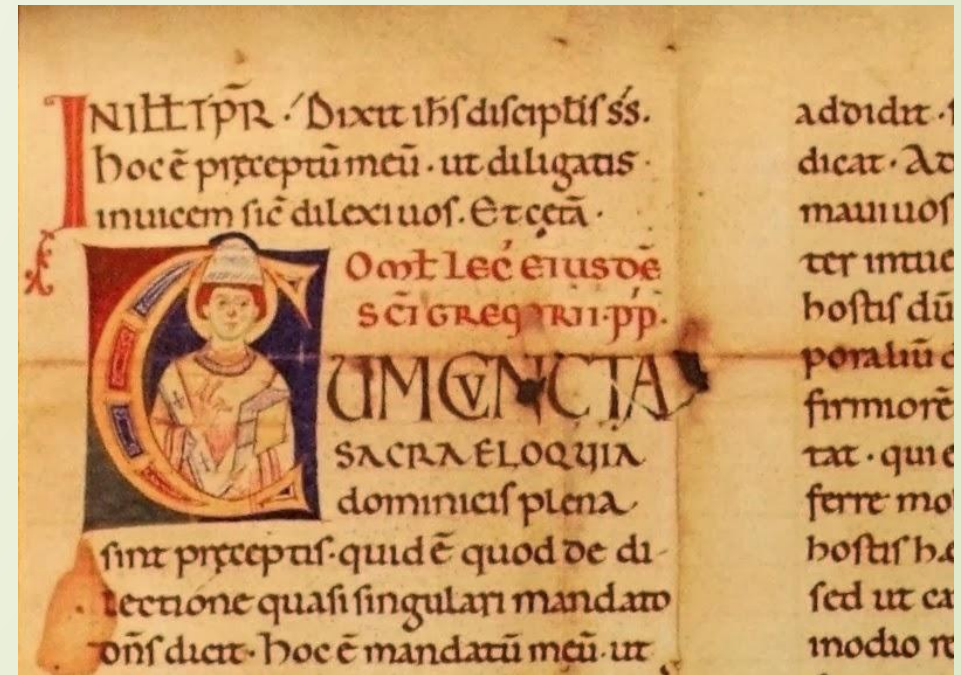 INILLTPR̄. Dixit ihs̄ discipłis s̄s.
hoc ē pręceptū meū. ut diligatis.
inuicem sic̄ dilexi uos. Et cetā.
Omł lec̄ eiusdē
sc̄i GREGORII. pp̄.
CUM CVNCTA
SACRA ELOQUIA
dominicis plena
sint pręceptis. quid ē quod de di-
lectione quasi singulari mandato
dn̄s dicit. hoc ē mandatū meū. ut
addidit.
dicat. Ad
maui uos
ter intue
hostis dū
poraliū
firmiorē
tat. qui e
ferre mo
hostis
sed ut ca
modio re